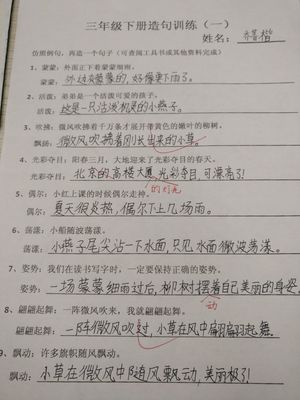 三年级下册造句训练（一）
姓名：
仿照例句，再造一个句子（可查阅工具书或其他资料完成）
1、蒙蒙：外面正下着蒙蒙细雨。
蒙蒙：外边灰蒙蒙的，好像要下雨了。
2、活泼：弟弟是一个活泼可爱的孩子。
活泼：这是一只活泼机灵的小燕子。
3、吹拂：微风吹拂着千万条才展开带黄色的嫩叶的柳树。
飘扬：微风吹拂着刚长出来的小草。
4、光彩夺目：阳春三月，大地迎来了光彩夺目的春天。
光彩夺目：北京的高楼大厦光彩夺目，可漂亮了！
的灯光
5、偶尔：小红上课的时候偶尔走神。
偶尔：夏天很炎热，偶尔下上几场雨。
6、荡漾：小船随波荡漾。
荡漾：小燕子尾尖沾一下水面，只见水面微波荡漾。
7、姿势：我们在读书写字时，一定要保持正确的姿势。
姿势：一场蒙蒙细雨过后，柳树摆着自己美丽的身姿。
动
8、翩翩起舞：一阵微风吹来，我就翩翩起舞。
翩翩起舞：一阵微风吹过，小草在风中翩翩起舞。
9、飘动：许多旗帜随风飘动。
飘动：小草在微风中随风飘动，美丽极了！